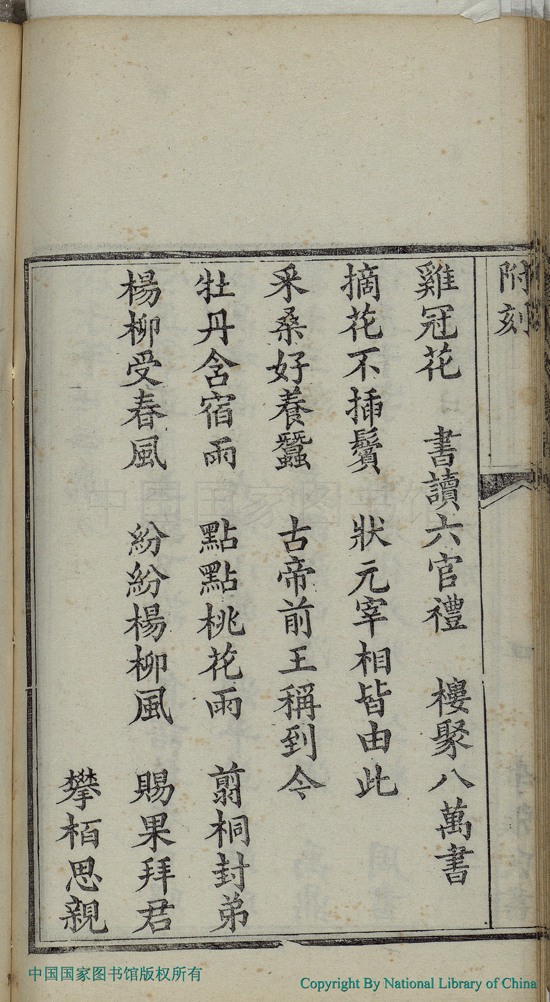 附刻
雞冠花 書讀六官禮 樓聚八萬書
摘花不插鬢 狀元宰相皆由此
采桑好養蠶 古帝前王稱到今
牡丹含宿雨 點點桃花雨 翦桐封弟
楊柳受春風 紛紛楊柳風 賜果拜君
攀栢思親
中国国家图书馆
中国国家图书馆版权所有
Copyright By National Library of China